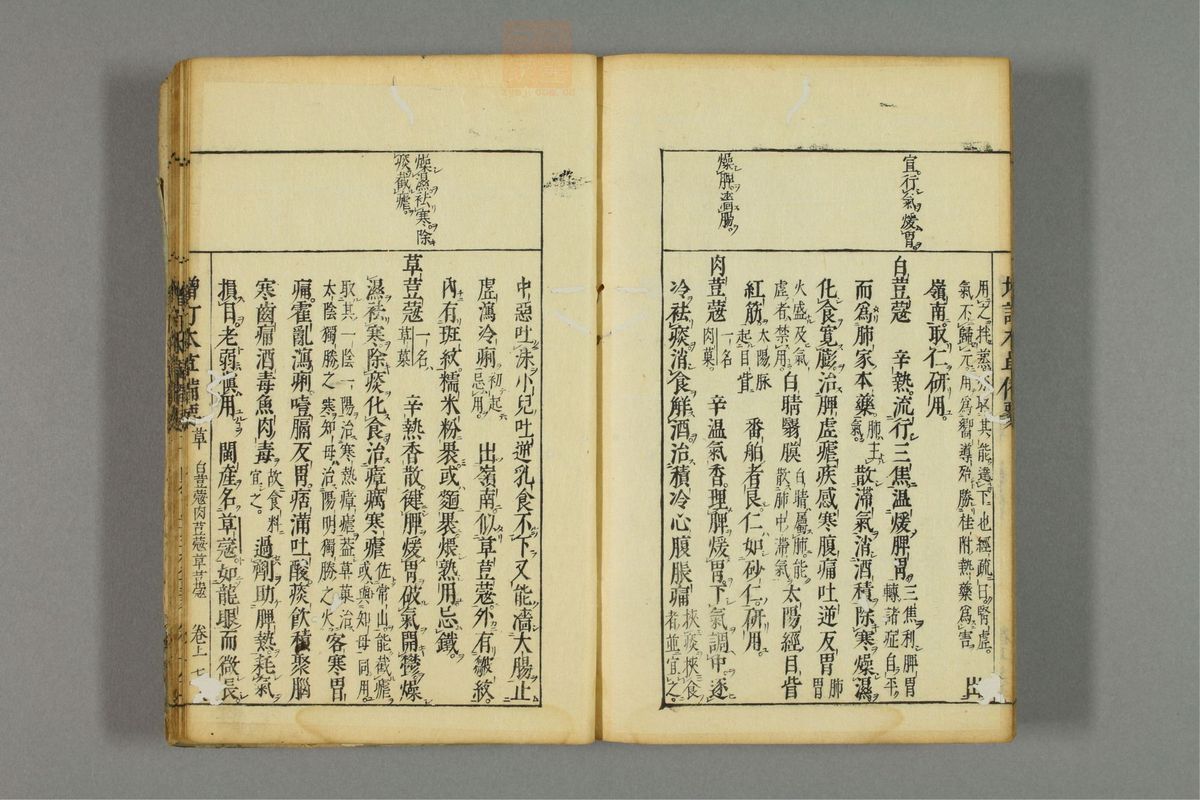 宜行氣煖胃
燥脾濇腸
氣不歸元用爲嚮導殆勝桂附熱藥爲害
嶺南取仁研用
白荳蔻 辛熱流行三焦温煖脾胃三焦利脾胃轉諸症自平
而爲肺家本藥肺主氣散滯氣消酒積除寒燥濕
化食寬膨治脾虚瘧疾感寒腹痛吐逆反胃肺胃
火盛及氣虚者禁用白睛翳膜白睛屬肺能散肺中滯氣太陽經目眥
紅筋太陽脉起目眥番舶者良仁如砂仁研用
肉荳蔻一名肉菓 辛温氣香理脾煖胃下氣調中逐
冷袪痰消食解酒治積冷心腹脹痛挾痰挾食者並宜之
燥濕袪寒除
痰截瘧
中惡吐沫小兒吐逆乳食不下又能濇大腸止
虚瀉冷痢初起忌用 出嶺南似草荳蔻外有皺紋
内有班紋糯米粉裹或麵裹煨熟用忌鐵
草荳蔻一名草菓 辛熱香散健脾煖胃破氣開鬱燥
濕袪寒除痰化食治瘴癘寒瘧佐常山能截瘧或與知母同用
取其一陰一陽治寒熱瘴瘧蓋草菓治太陰獨勝之寒知母治陽明獨勝之火客寒胃
痛霍亂瀉痢噎膈反胃痞滿吐酸痰飲積聚腦
寒齒痛酒毒魚肉毒故食料宜之過劑助脾熱耗氣
損目老弱慎用 閩産名草蔻如龍眼而微長
增訂本草備要 草 白荳蔻肉荳蔻草荳蔻 卷上